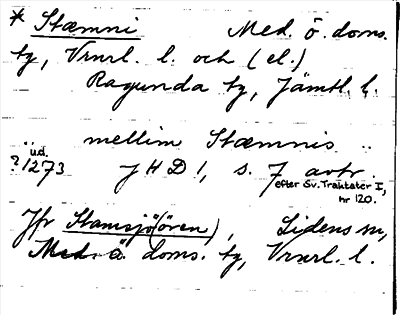 * Stæmni Med. ö. doms.
tg, Vrnrl. l. och (el.)
Ragunda tg, Jämtl. l.
mellim Stæmnis ..
ü.d.
? 1273 JHD 1, s. 7 avtr.
efter Sv. Traktater I,
nr 120.
Jfr Stamsjö(ören), Lidens sn,
Med. ö. doms. tg, Vrnrl. l.